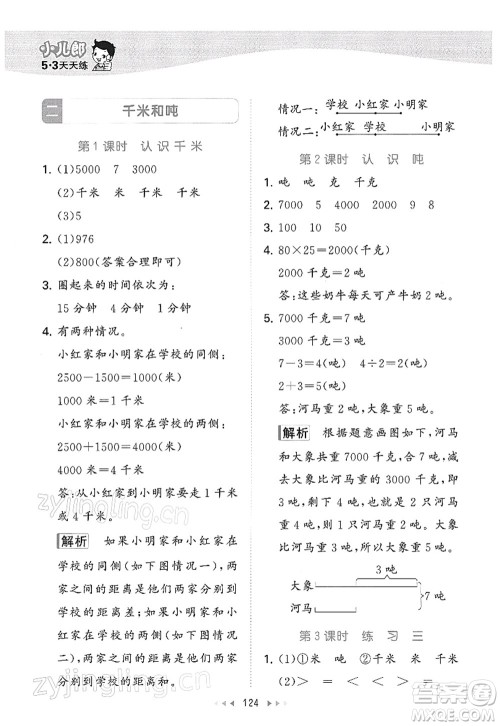 小儿郎
5·3天天练
二 千米和吨
第1课时 认识千米
1. (1)5000 7 3000
(2)千米 米 千米 千米
(3)5
2. (1)976
(2)800(答案合理即可)
3. 圈起来的时间依次为:
15分钟 4分钟 1分钟
4. 有两种情况。
小红家和小明家在学校的同侧:
2500-1500=1000(米)
1000米=1千米
小红家和小明家在学校的两侧:
2500+1500=4000(米)
4000米=4千米
答:从小红家到小明家有1千米
或4千米。
解析 如果小明家和小红家在
学校的同侧(如下图情况一),两
家之间的距离是两家分别到学
校的距离差;如果小明家和小
红家在学校的两侧(如下图情况
二),两家之间的距离是两家分
别到学校的距离和。
情况一: 学校 小红家 小明家
情况二: 小红家 学校 小明家
第2课时 认识吨
1. 吨 吨 千克 千克
2. 7000 5 4000 2000 9 8
3. 100 50 10
4. 80×25=2000(千克)
2000千克=2吨
答:这些奶牛每天可产牛奶2吨。
5. 7000千克=7吨
3000千克=3吨
7-3=4(吨) 4÷2=2(吨)
2+3=5(吨)
答:河马重2吨,大象重5吨。
解析 根据题意画图,河马
和大象共重7000千克,即
7吨,减去大象比河马重的
3000千克,即3吨,剩下4
吨,也就是2个河马的重量
是4吨,河马重2吨。大象
比河马重3吨,所以大象重
5吨。
大象
河马 7吨
3吨
第3课时 练习三
1. (1)① = < = ②千米 米
(2)① > > < > =
124
zyjingling.cn
zyjingling.cn
答案圈
MXQE.COM